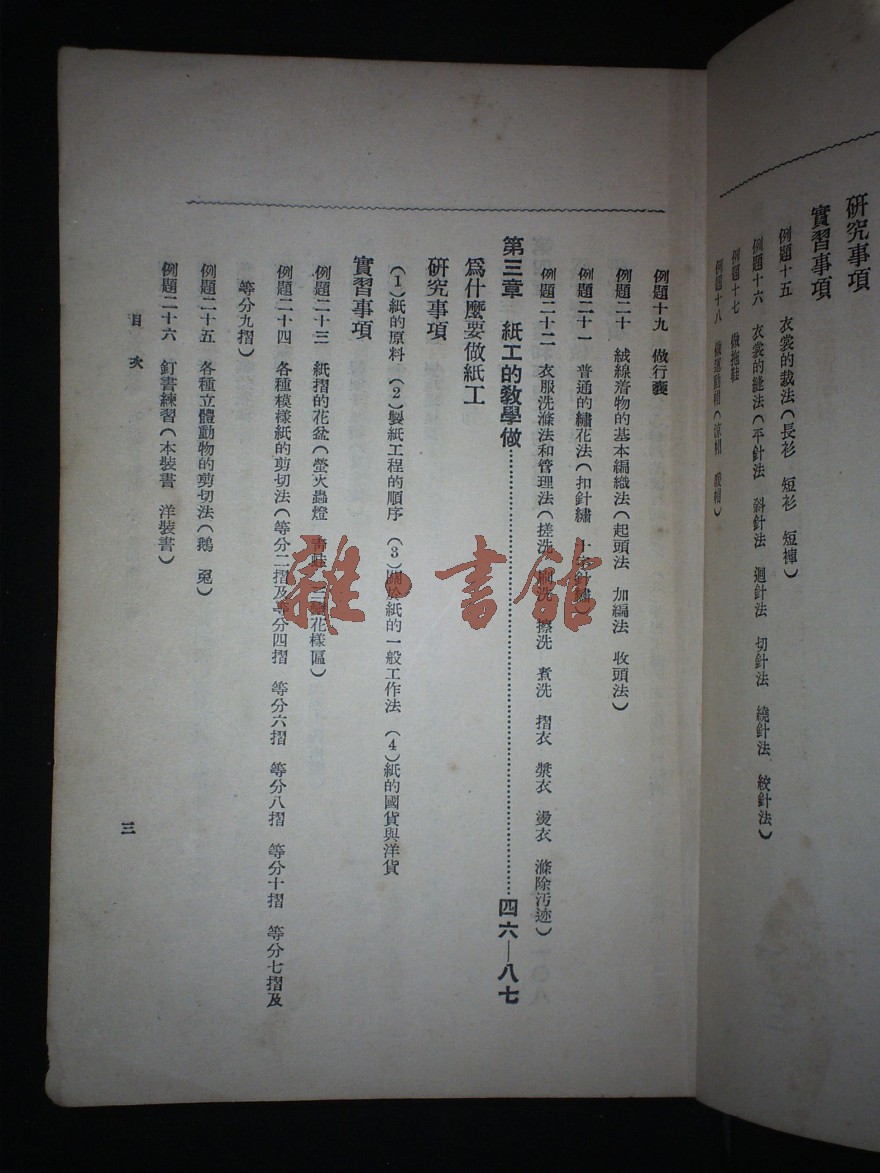 研究事項
實習事項
例題十五　衣裳的裁法(長衫　短衫　短褲)
例題十六　衣裳的縫法(平針法　斜針法　迴針法　切針法　繞針法　絞針法)
例題十七　做拖鞋
例題十八　做運動帽(涼帽　暖帽)
例題十九　做行囊
例題二十　絨線着物的基本編織法(起頭法　加編法　收頭法)
例題二十一　普通的繡花法(扣針繡　十字針繡)
例題二十二　衣服洗滌法和管理法(搓洗　刷洗　擦洗　煮洗　摺衣　漿衣　燙衣　滌除污迹)
第三章　紙工的教學做……四六—八七
爲什麼要做紙工
研究事項
(1)紙的原料　(2)製紙工程的順序　(3)關於紙的一般工作法　(4)紙的國貨與洋貨
實習事項
例題二十三　紙摺的花盆(螢火蟲燈　青蛙　花樣區)
例題二十四　各種模樣紙的剪切法(等分二摺及等分四摺　等分六摺　等分八摺　等分十摺　等分七摺及
等分九摺)
例題二十五　各種立體動物的剪切法(鵝　兔)
例題二十六　釘書練習(本裝書　洋裝書)
目次
三
雜·書館